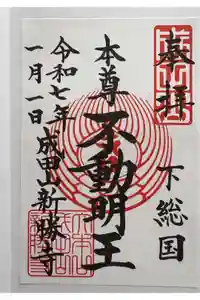 奉拝
下総国
本尊
不動明王
令和七年
一月一日
成田山新勝寺